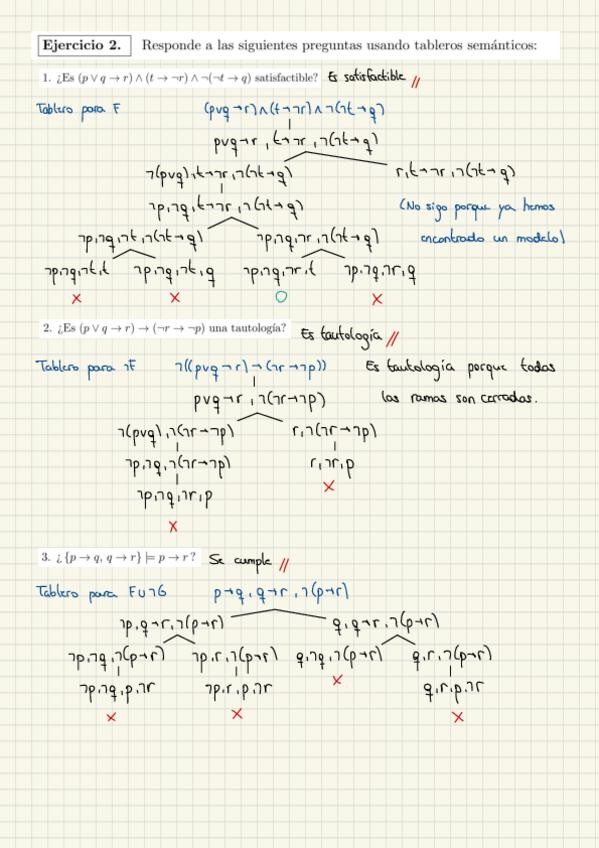 Ejercicio 2. Responde a las siguientes preguntas usando tableros semánticos:
1. ¿Es (p ∨ q → r) ∧ (t → ¬r) ∧ ¬(¬t → q) satisfactible? Es satisfactible //
Tablero para F (p∨q→r)∧(t→¬r)∧¬(¬t→q)
p∨q→r, t→¬r, ¬(¬t→q)
¬(p∨q), t→¬r, ¬(¬t→q) r, t→¬r, ¬(¬t→q)
¬p,¬q, t→¬r, ¬(¬t→q) (No sigo porque ya hemos
¬p,¬q,¬t,¬(¬t→q) ¬p,¬q,¬r,¬(¬t→q) encontrado un modelo)
¬p,¬q,¬t,t ¬p,¬q,¬t,q ¬p,¬q,¬r,t ¬p,¬q,¬r,q
× × O ×
2. ¿Es (p ∨ q → r) → (¬r → ¬p) una tautología? Es tautología //
Tablero para ¬F ¬((p∨q→r)→(¬r→¬p)) Es tautología porque todas
p∨q→r, ¬(¬r→¬p) las ramas son cerradas.
¬(p∨q), ¬(¬r→¬p) r, ¬(¬r→¬p)
¬p,¬q,¬(¬r→¬p) r,¬r,p
¬p,¬q,¬r,p ×
×
3. ¿{p → q, q → r} ⊨ p → r? Se cumple //
Tablero para F∪¬G p→q, q→r, ¬(p→r)
¬p, q→r, ¬(p→r) q, q→r, ¬(p→r)
¬p,¬q,¬(p→r) ¬p,r,¬(p→r) q,¬q,¬(p→r) q,r,¬(p→r)
¬p,¬q,p,¬r ¬p,r,p,¬r × q,r,p,¬r
× × ×